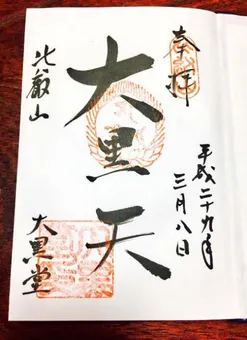 奉拝
平成二十九年
三月八日
大黒天
比叡山
大黒堂